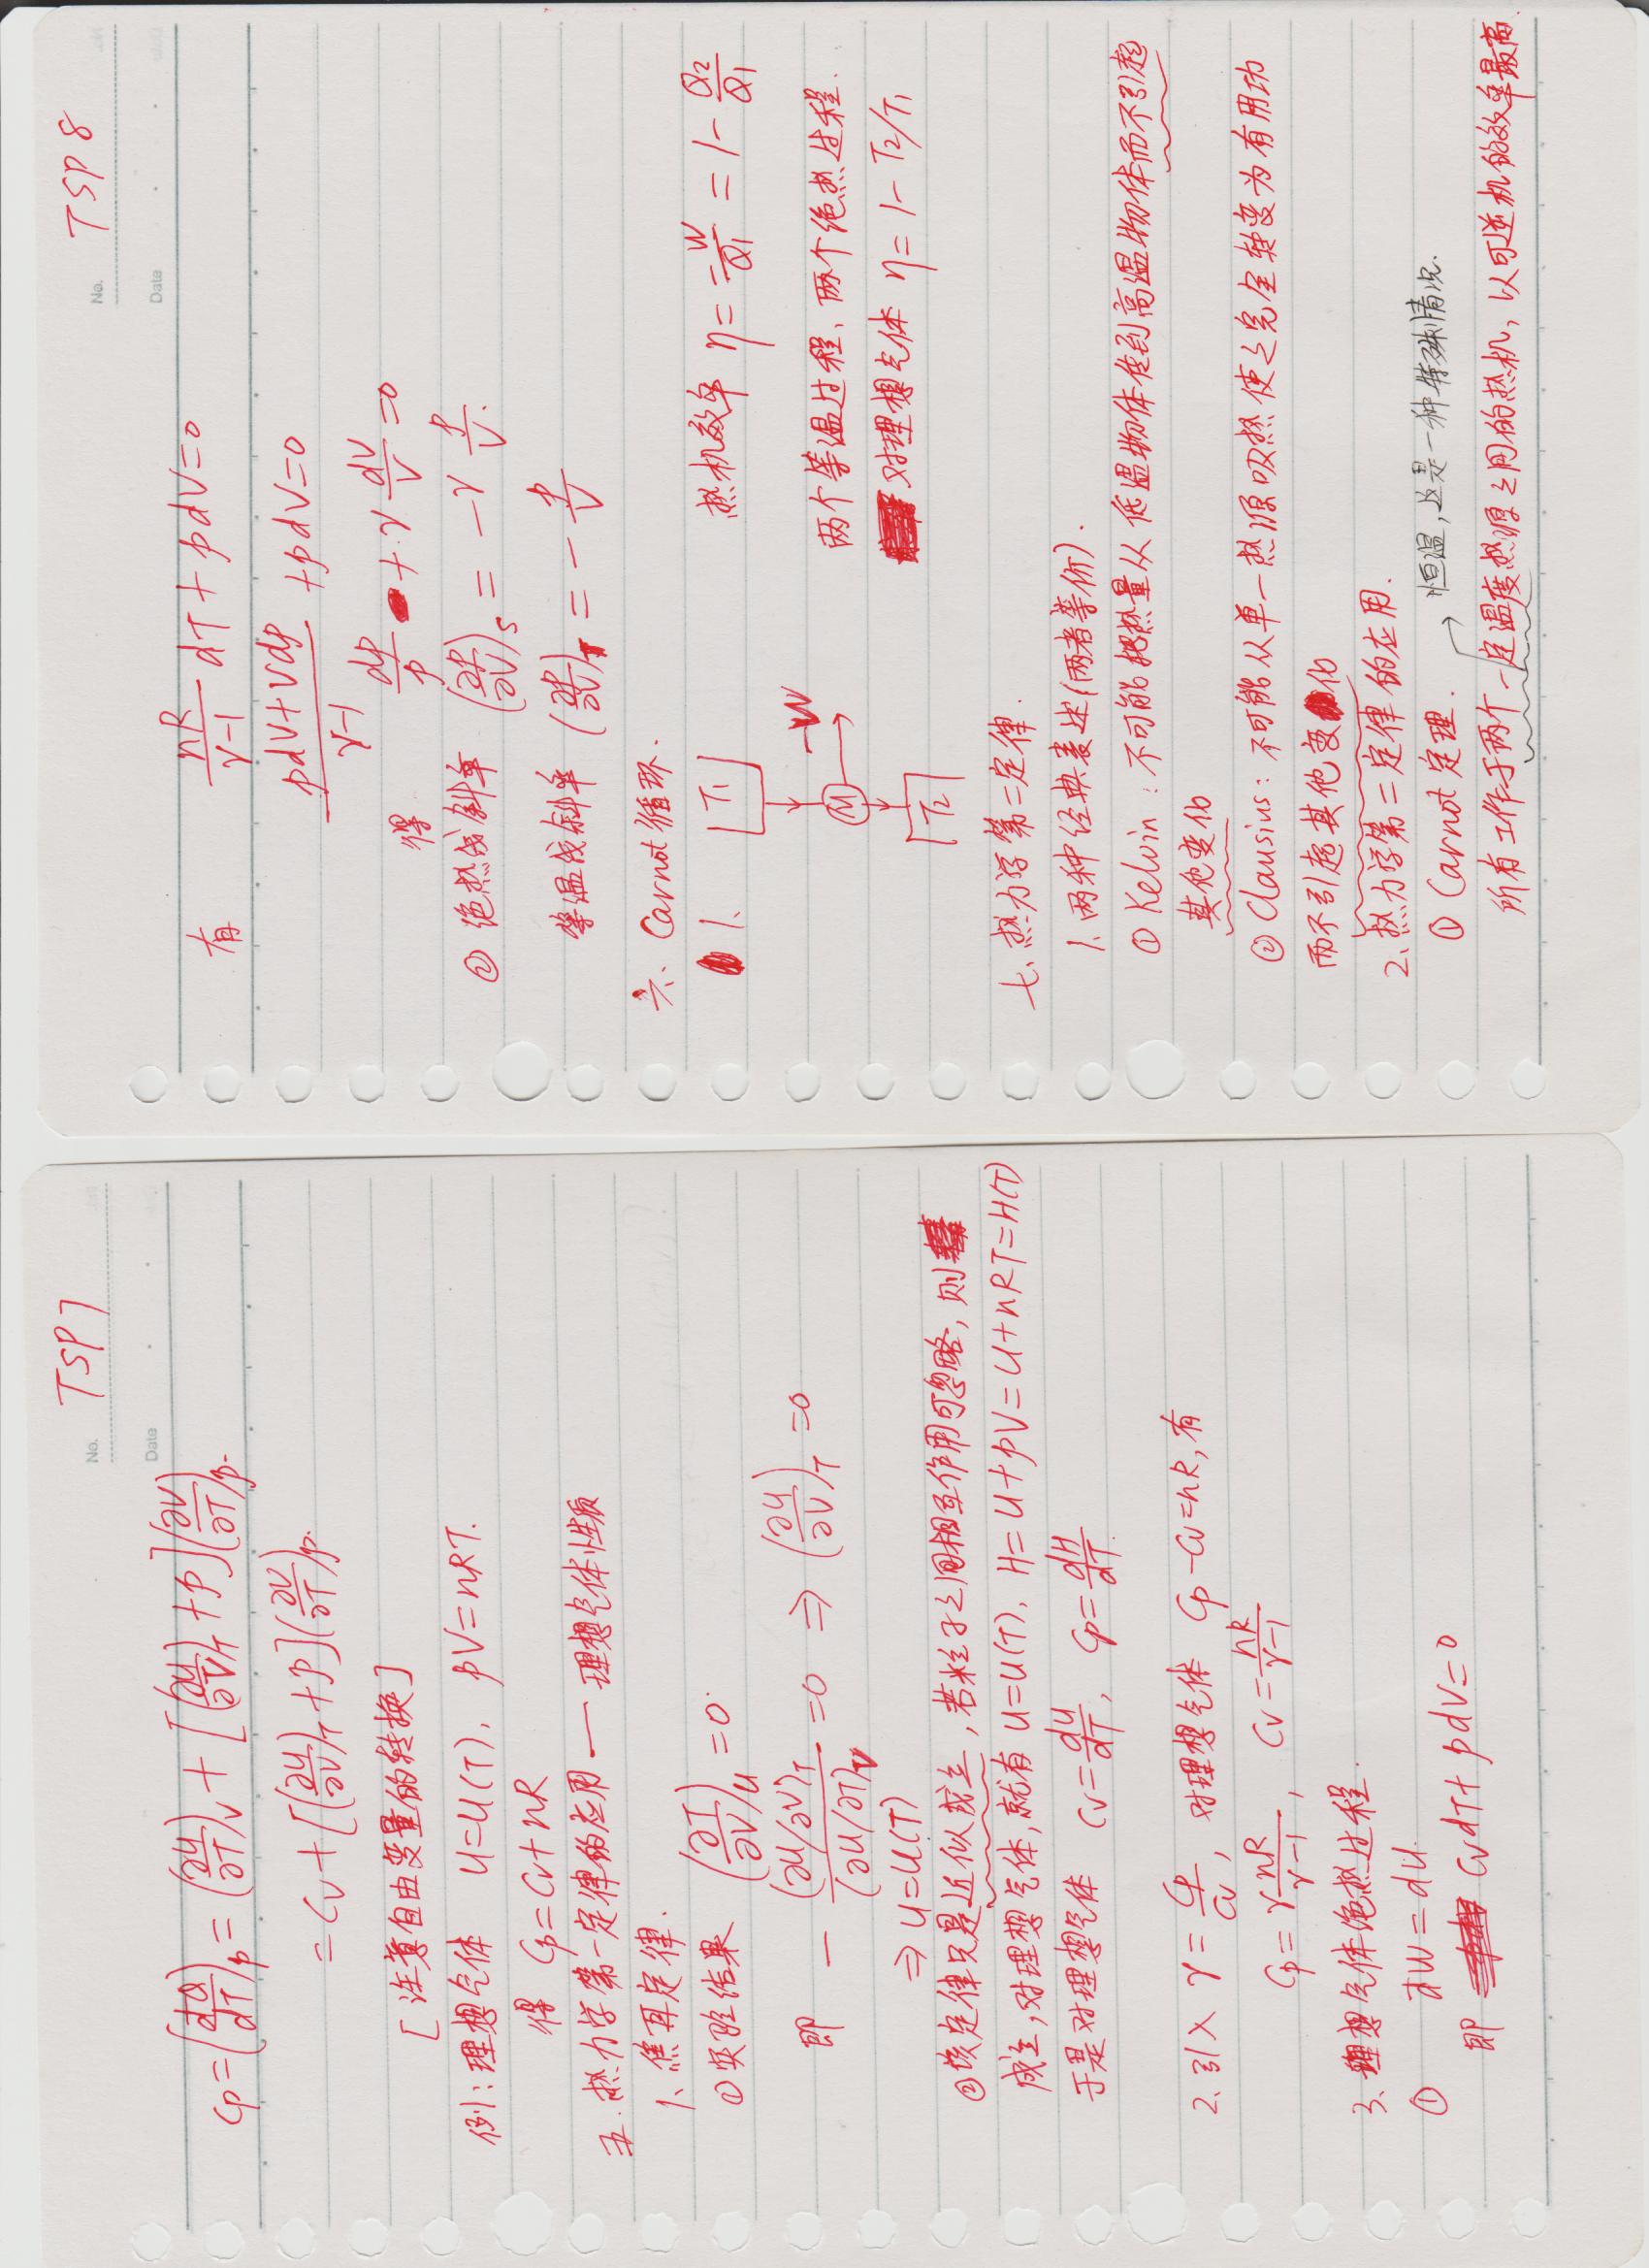 No. TSP7
Date
Cp=(đQ/dT)p=(∂U/∂T)v+[(∂U/∂V)T+p](∂V/∂T)p.
=Cv+[(∂U/∂V)T+p](∂V/∂T)p.
[注意自由变量的转换]
例:理想气体 U=U(T), pV=nRT.
得 Cp=Cv+nR
五.热力学第一定律的应用—理想气体性质
1.焦耳定律.
①实验结果 (∂T/∂V)U=0.
即 -(∂U/∂V)T/(∂U/∂T)V=0 ⇒ (∂U/∂V)T=0
⇒U=U(T)
②该定律只是近似成立,若粒子之间相互作用可忽略,则
成立,对理想气体,就有U=U(T), H=U+pV=U+nRT=H(T)
于是对理想气体 Cv=dU/dT, Cp=dH/dT.
2.引入 γ=Cp/Cv, 对理想气体 Cp-Cv=nR,有
Cp=γ nR/(γ-1), Cv=nR/(γ-1)
3.理想气体绝热过程.
① đW=dU.
即 CvdT+pdV=0
No. TSP8
Date
有 nR/(γ-1) dT+pdV=0
(pdV+Vdp)/(γ-1) +pdV=0
得 dp/p +γ dV/V=0
②绝热线斜率 (∂p/∂V)S=-γ p/V.
等温线斜率 (∂p/∂V)T=-p/V
六.Carnot循环.
1. T1 热机效率 η=-W/Q1=1-Q2/Q1
-W
M 两个等温过程,两个绝热过程.
对理想气体 η=1-T2/T1
T2
七.热力学第二定律.
1.两种经典表述(两者等价).
①Kelvin:不可能把热量从低温物体传到高温物体而不引起
其他变化
②Clausius:不可能从单一热源吸热使之完全转变为有用功
而不引起其他变化
2.热力学第二定律的应用.
①Carnot定理. → 恒温,这是一种特殊情况.
所有工作于两个一定温度热源之间的热机,以可逆机的效率最高.